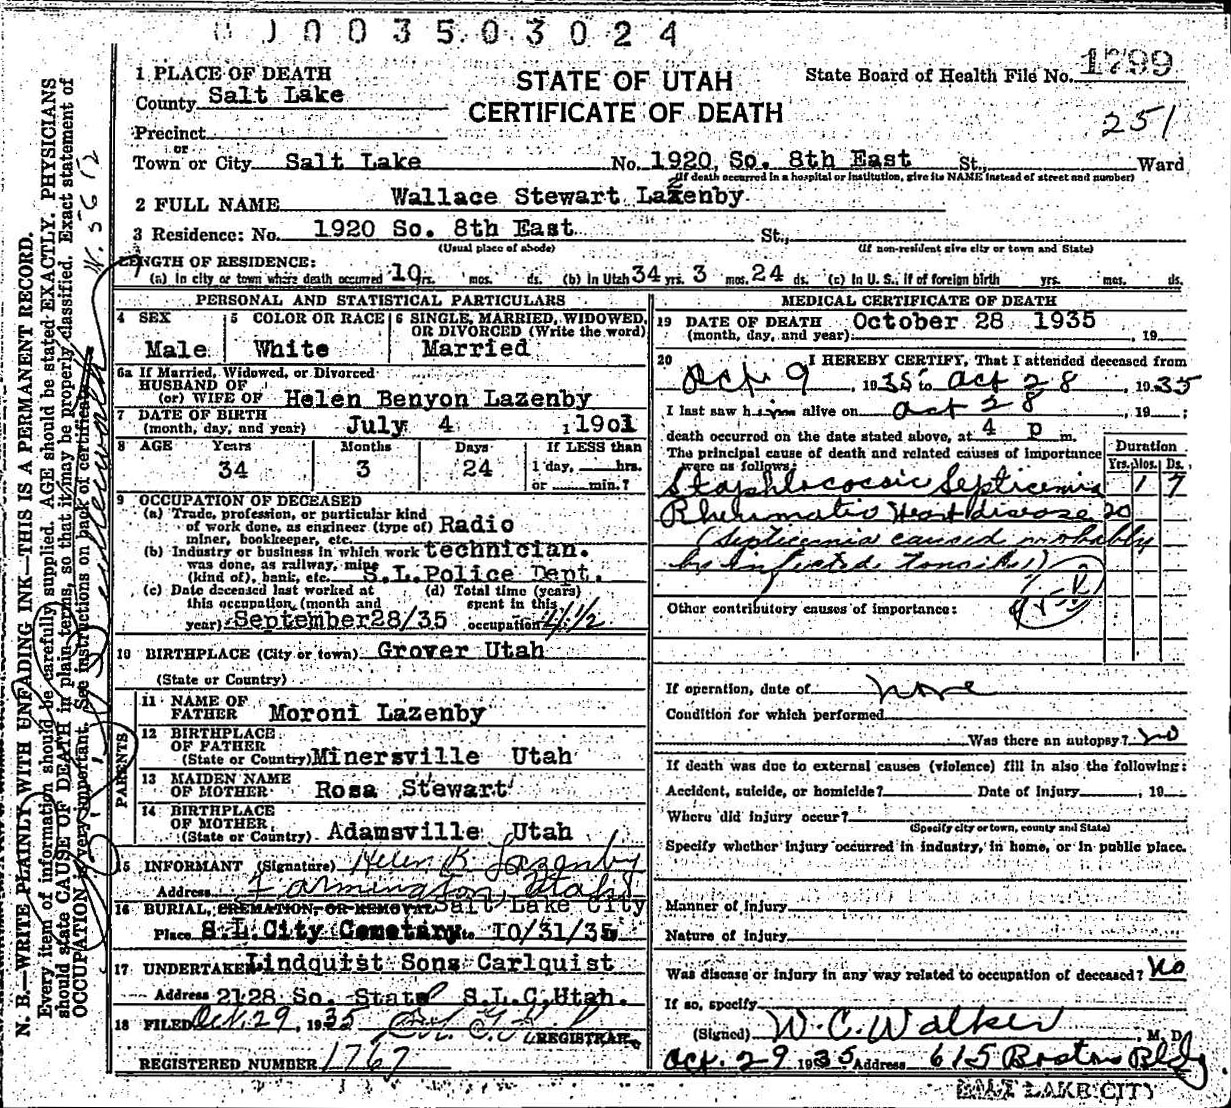 0 0 0 0 3 5 0 3 0 2 4
1 PLACE OF DEATH
County Salt Lake
Precinct
or
Town or City Salt Lake No. 1920 So. 8th East St., Ward
(If death occurred in a hospital or institution, give its NAME instead of street and number)
STATE OF UTAH
CERTIFICATE OF DEATH
State Board of Health File No. 1799
251
2 FULL NAME Wallace Stewart Lazenby
3 Residence: No. 1920 So. 8th East St.,
(Usual place of abode) (If non-resident give city or town and State)
LENGTH OF RESIDENCE:
(a) In city or town where death occurred 10 yrs. mos. ds. (b) In Utah 34 yrs. 3 mos. 24 ds. (c) In U. S., if of foreign birth yrs. mos. ds.
PERSONAL AND STATISTICAL PARTICULARS
4 SEX Male
5 COLOR OR RACE White
6 SINGLE, MARRIED, WIDOWED, OR DIVORCED (Write the word) Married
6a If Married, Widowed, or Divorced
HUSBAND OF
(or) WIFE OF Helen Benyon Lazenby
7 DATE OF BIRTH
(month, day, and year) July 4 1901
8 AGE Years Months Days If LESS than
34 3 24 1 day, hrs.
or min.?
9 OCCUPATION OF DECEASED
(a) Trade, profession, or particular kind
of work done, as engineer (type of) Radio
miner, bookkeeper, etc.
(b) Industry or business in which work technician.
was done, as railway, mine
(kind of), bank, etc. S.L.Police Dept.
(c) Date deceased last worked at (d) Total time (years)
this occupation (month and spent in this
year) September 28/35 occupation 4 1/2
10 BIRTHPLACE (City or town) Grover Utah
(State or Country)
PARENTS
11 NAME OF
FATHER Moroni Lazenby
12 BIRTHPLACE
OF FATHER
(State or Country) Minersville Utah
13 MAIDEN NAME
OF MOTHER Rosa Stewart
14 BIRTHPLACE
OF MOTHER
(State or Country) Adamsville Utah
15 INFORMANT (Signature) Helen B. Lazenby
Address Farmington, Utah
16 BURIAL, CREMATION, OR REMOVAL Salt Lake City
Place S.L.City Cemetary 10/31/35
17 UNDERTAKER Lindquist Sons Carlquist
Address 2128 So. State S.L.C.Utah.
18 FILED Oct. 29, 1935
REGISTRAR.
REGISTERED NUMBER 1767
MEDICAL CERTIFICATE OF DEATH
19 DATE OF DEATH October 28 1935
(month, day, and year) , 19
20 I HEREBY CERTIFY, That I attended deceased from
Oct. 9, 1935 to Oct 28, 1935
I last saw him alive on Oct 28, 19 ;
death occurred on the date stated above, at 4 p m.
The principal cause of death and related causes of importance
were as follows:
Duration
Yrs. Mos. Ds.
Staphlococcic Septicemia 1 7
Rheumatic Heart disease 20
(Septicemia caused probably
by infected Tonsils)
Other contributory causes of importance:
If operation, date of none
Condition for which performed
Was there an autopsy? no
If death was due to external causes (violence) fill in also the following:
Accident, suicide, or homicide? Date of injury , 19
Where did injury occur?
(Specify city or town, county and State)
Specify whether injury occurred in industry, in home, or in public place.
Manner of injury
Nature of injury
Was disease or injury in any way related to occupation of deceased? No
If so, specify
(Signed) W. C. Walker M. D.
Oct. 29 1935 Address 615 Boston Bldg
SALT LAKE CITY
N. B.—WRITE PLAINLY WITH UNFADING INK—THIS IS A PERMANENT RECORD.
Every item of information should be carefully supplied. AGE should be stated EXACTLY. PHYSICIANS
should state CAUSE OF DEATH in plain terms, so that it may be properly classified. Exact statement of
OCCUPATION is very important. See instructions on back of certificate.